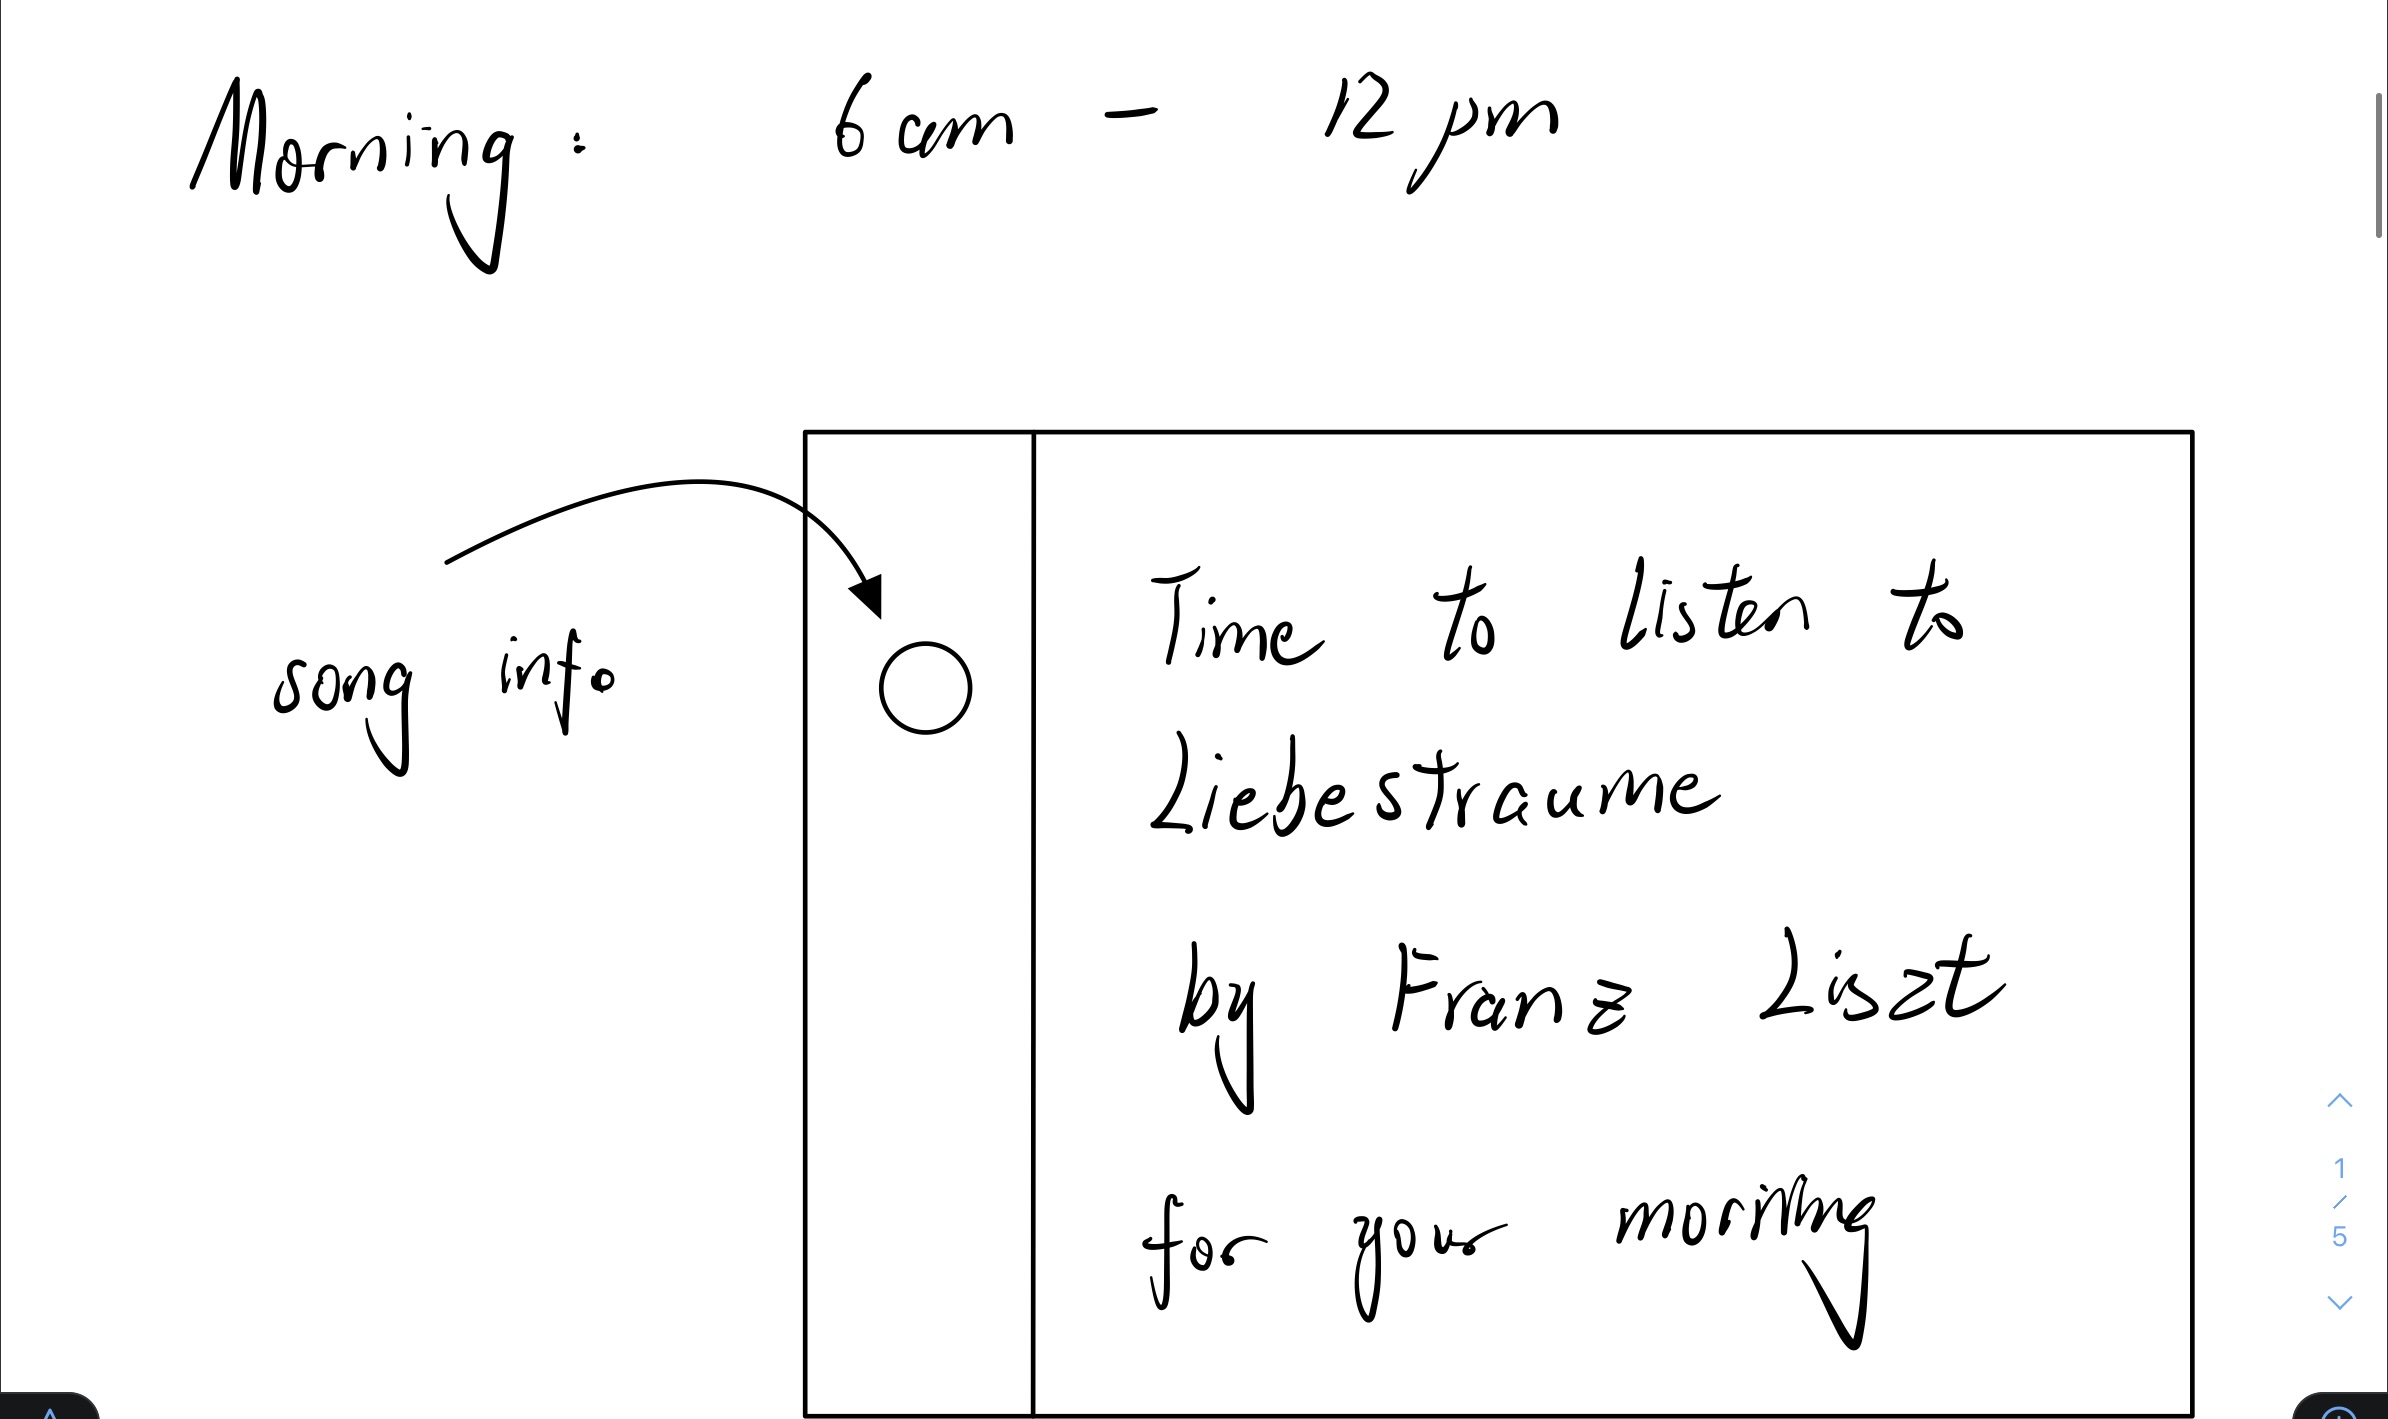 Morning : 6 am - 12 pm
song info
Time to listen to
Liebestraume
by Franz Liszt
for your morning
1
/
5